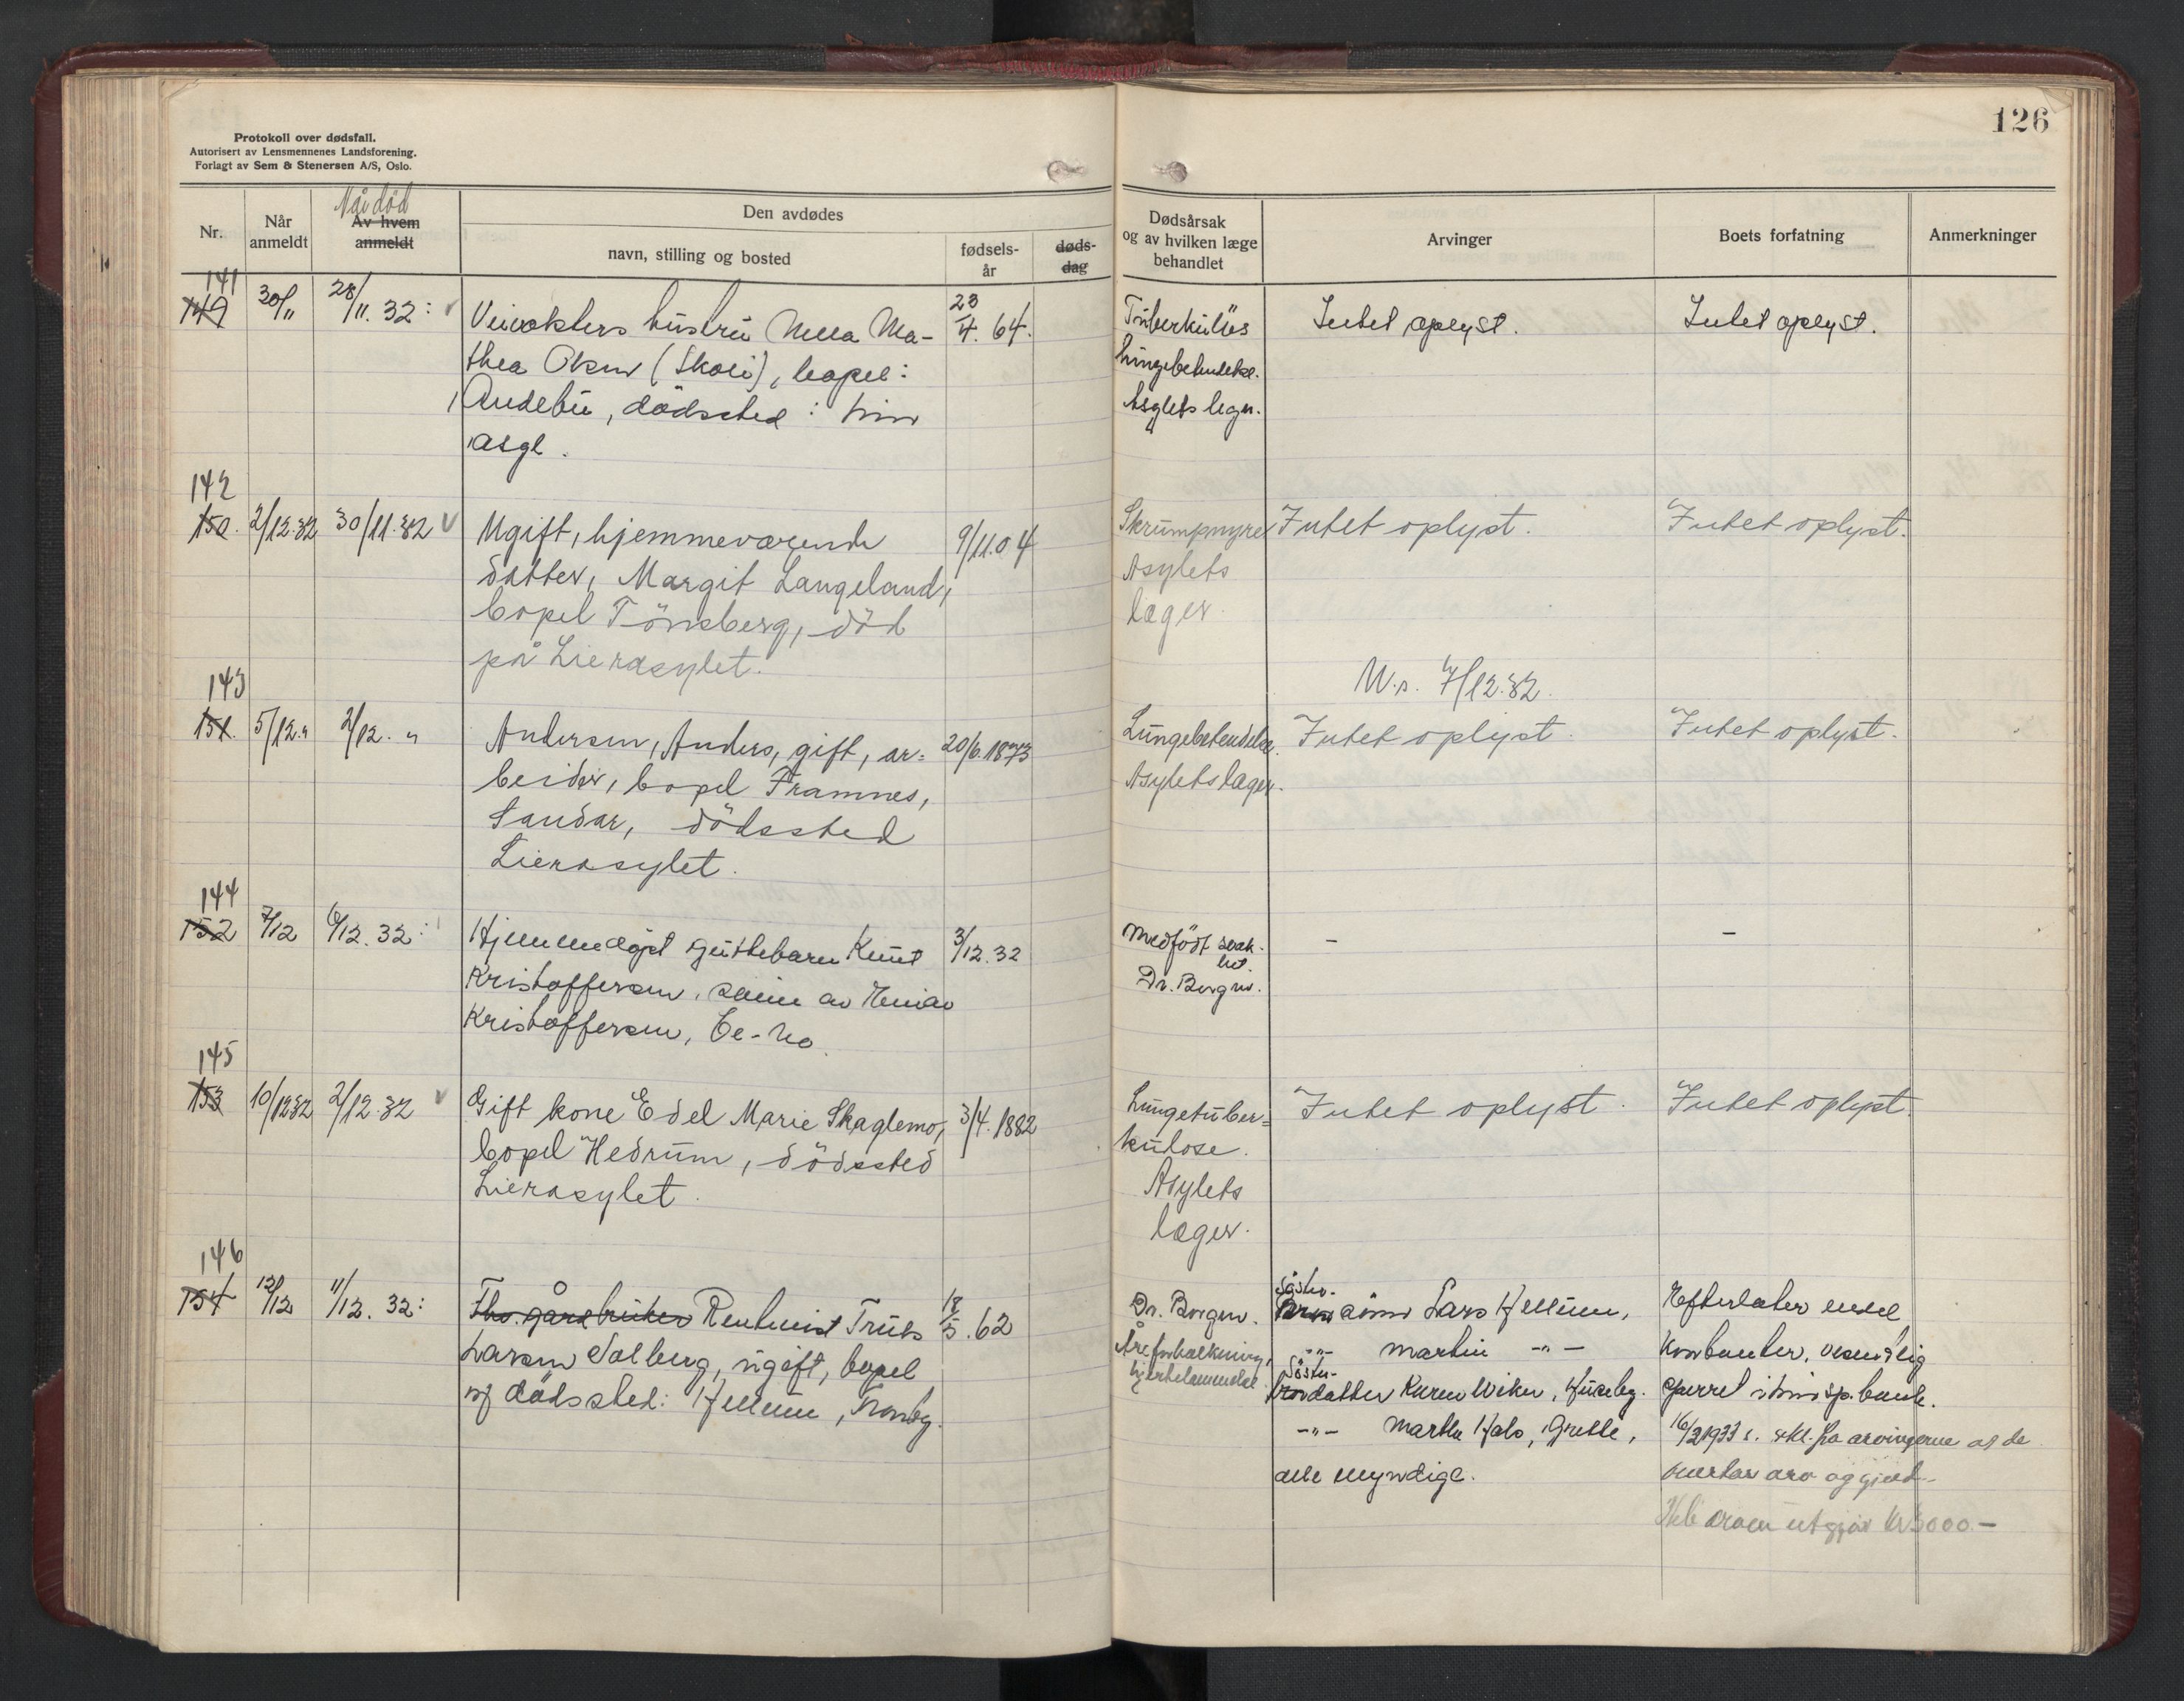 126
Protokoll over dødsfall.
Autorisert av Lensmennenes Landsforening.
Forlagt av Sem & Stenersen A/S, Oslo.
Nr.
Når anmeldt
Når död
Av hvem anmeldt
Den avdødes
navn, stilling og bosted
fødsels-år
døds-dag
Dødsårsak og av hvilken læge behandlet
Arvinger
Boets forfatning
Anmerkninger
141
149 30/11 28/11. 32:
hustru Ma-
thea (Skoli), bopel:
Andebu, dödssted: Lier
asyl.
23/4. 64.
Tuberkuløs
lungebetendelse.
Asylets leger.
Intet oplyst.
Intet oplyst.
142
150. 2/12.32 30/11.32 V
Ugift, hjemmeværende
datter, Margit Langeland,
bopel Tönsberg, död
på Lierasylet.
9/11.04
Skrumpnyre
Asylets
læger.
Intet oplyst.
Intet oplyst.
143
151. 5/12." 2/12. "
Andersen, Anders, gift, ar-
beider, bopel Framnes,
Sandar, dödssted
Lierasylet.
20/6.1873
Lungebetendelse.
Asylets læger.
7/12.32.
Intet oplyst.
Intet oplyst.
144
152 7/12 6/12. 32:
Hjemmedöpt guttebarn Knut
Kristoffersen, sönn av
Kristoffersen,
3/12. 32
Medfödt svak-
het.
Dr. Borgen.
-
-
145
153 10/12 32 2/12.32 V
Gift kone Edel Marie Skaglemo,
bopel Hedrum, dödssted
Lierasylet.
3/4. 1882
Lungetuber-
kulose.
Asylets
læger.
Intet oplyst.
Intet oplyst.
146
154 12/12 11/12. 32:
Fhv. gårdbruker Rentenist Truls
Larsen Solberg, ugift, bopel
og dödssted: Hellum, Tranby.
18/5. 62
Dr. Borgen.
Åreforkalkning,
hjertelammelse.
Söster-
Bror sönn Lars Hellum,
-"- Martin -"-
Söster-
brordatter Karen Wiker, Huseby.
-"- Marthe Grette,
alle myndige.
Efterlater endel
kontanter, vesentlig
i Lier sp.bank.
16/2 1933 s. skl. fra arvingerne at de
overtar arv og gjeld.-
arven utgjør kr 3000.-